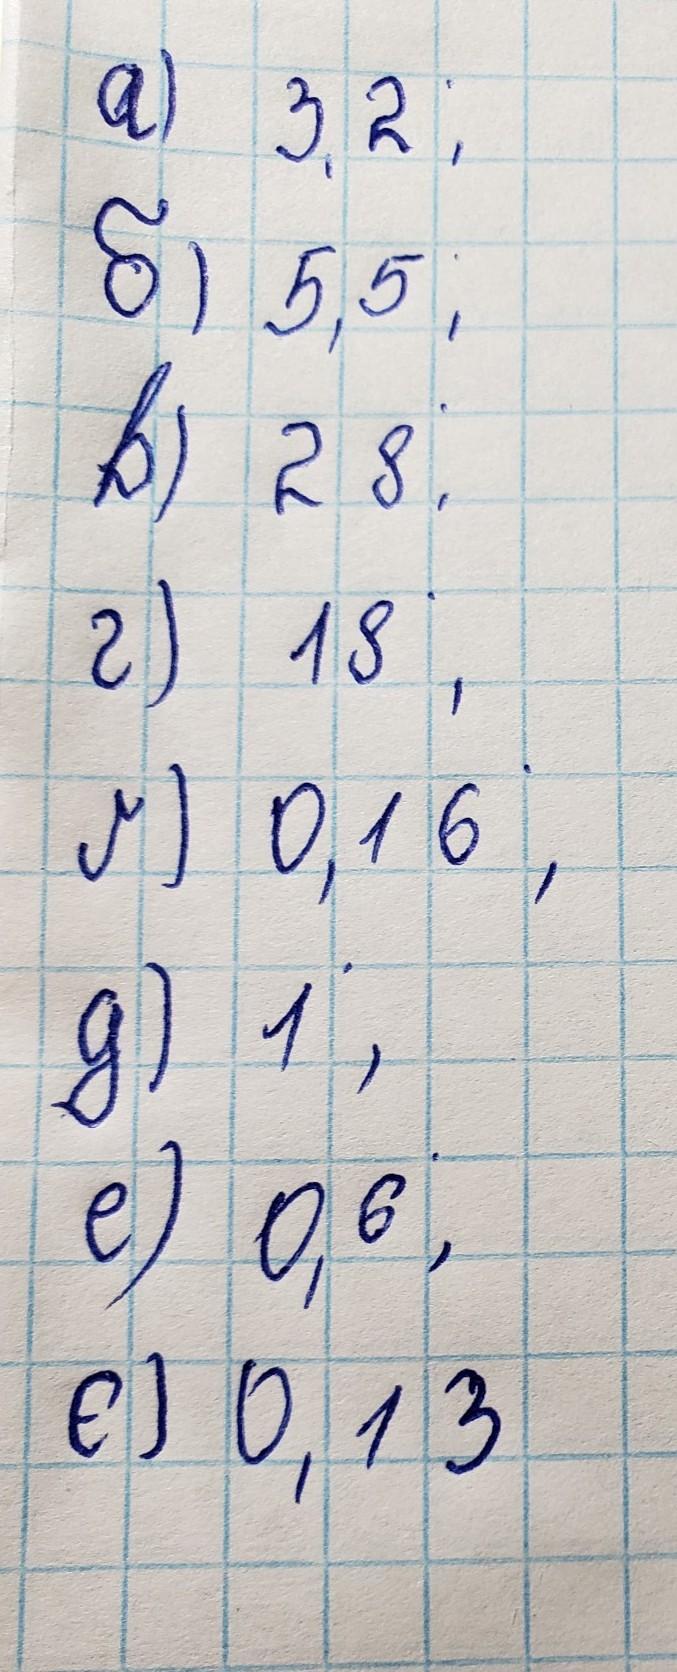 а) 3,2;
б) 5,5;
в) 28;
г) 18;
ґ) 0,16;
д) 1;
е) 0,6;
є) 0,13